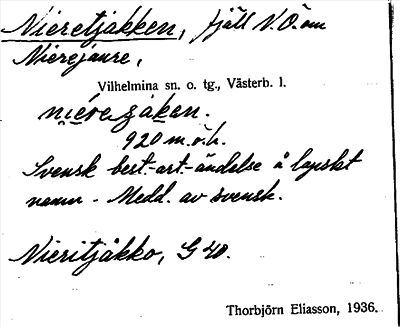 Nieretjåkken, fjäll V.O. om
Nierejaure,
Vilhelmina sn. o. tg., Västerb. l.
niére ǥåken.
920 m.ö.h.
Svensk best.-art.-ändelse å lapskt
namn - Medd. av svensk.
Nieritjåkko, G 40.
Thorbjörn Eliasson, 1936.